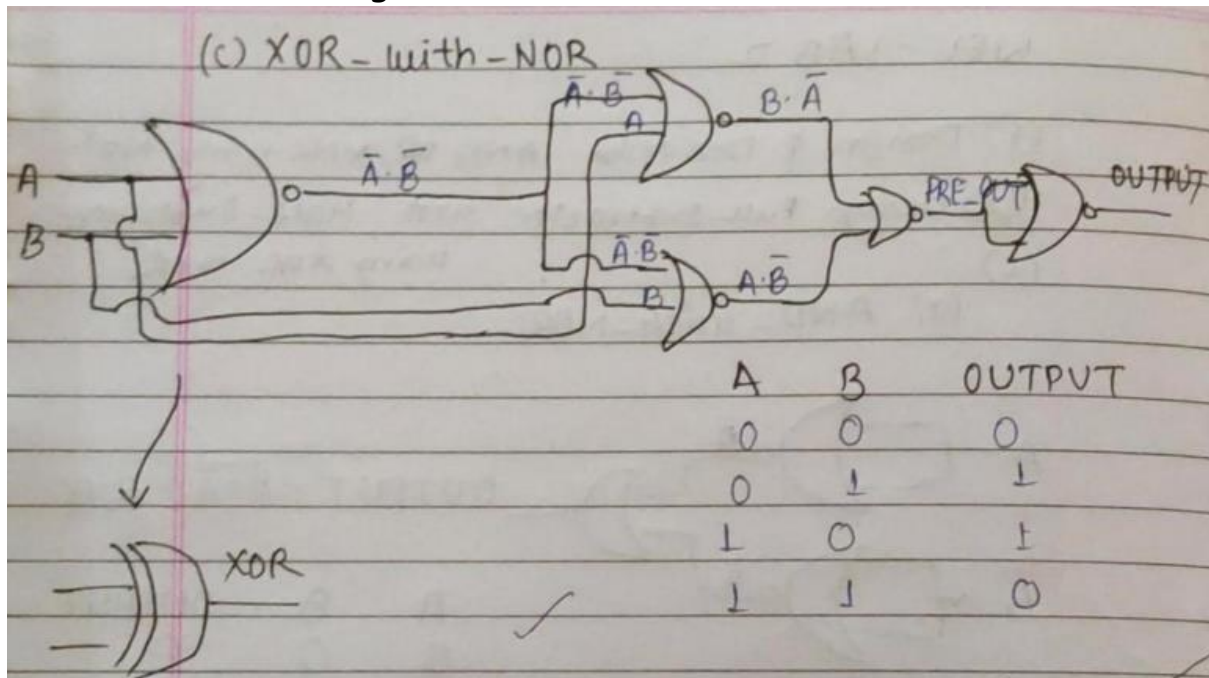 (C) XOR-with-NOR
A̅·B̅
A
B·A̅
A
B
A̅·B̅
PRE_OUT
OUTPUT
A̅·B̅
B
A·B̅
A B OUTPUT
0 0 0
0 1 1
1 0 1
1 1 0
XOR